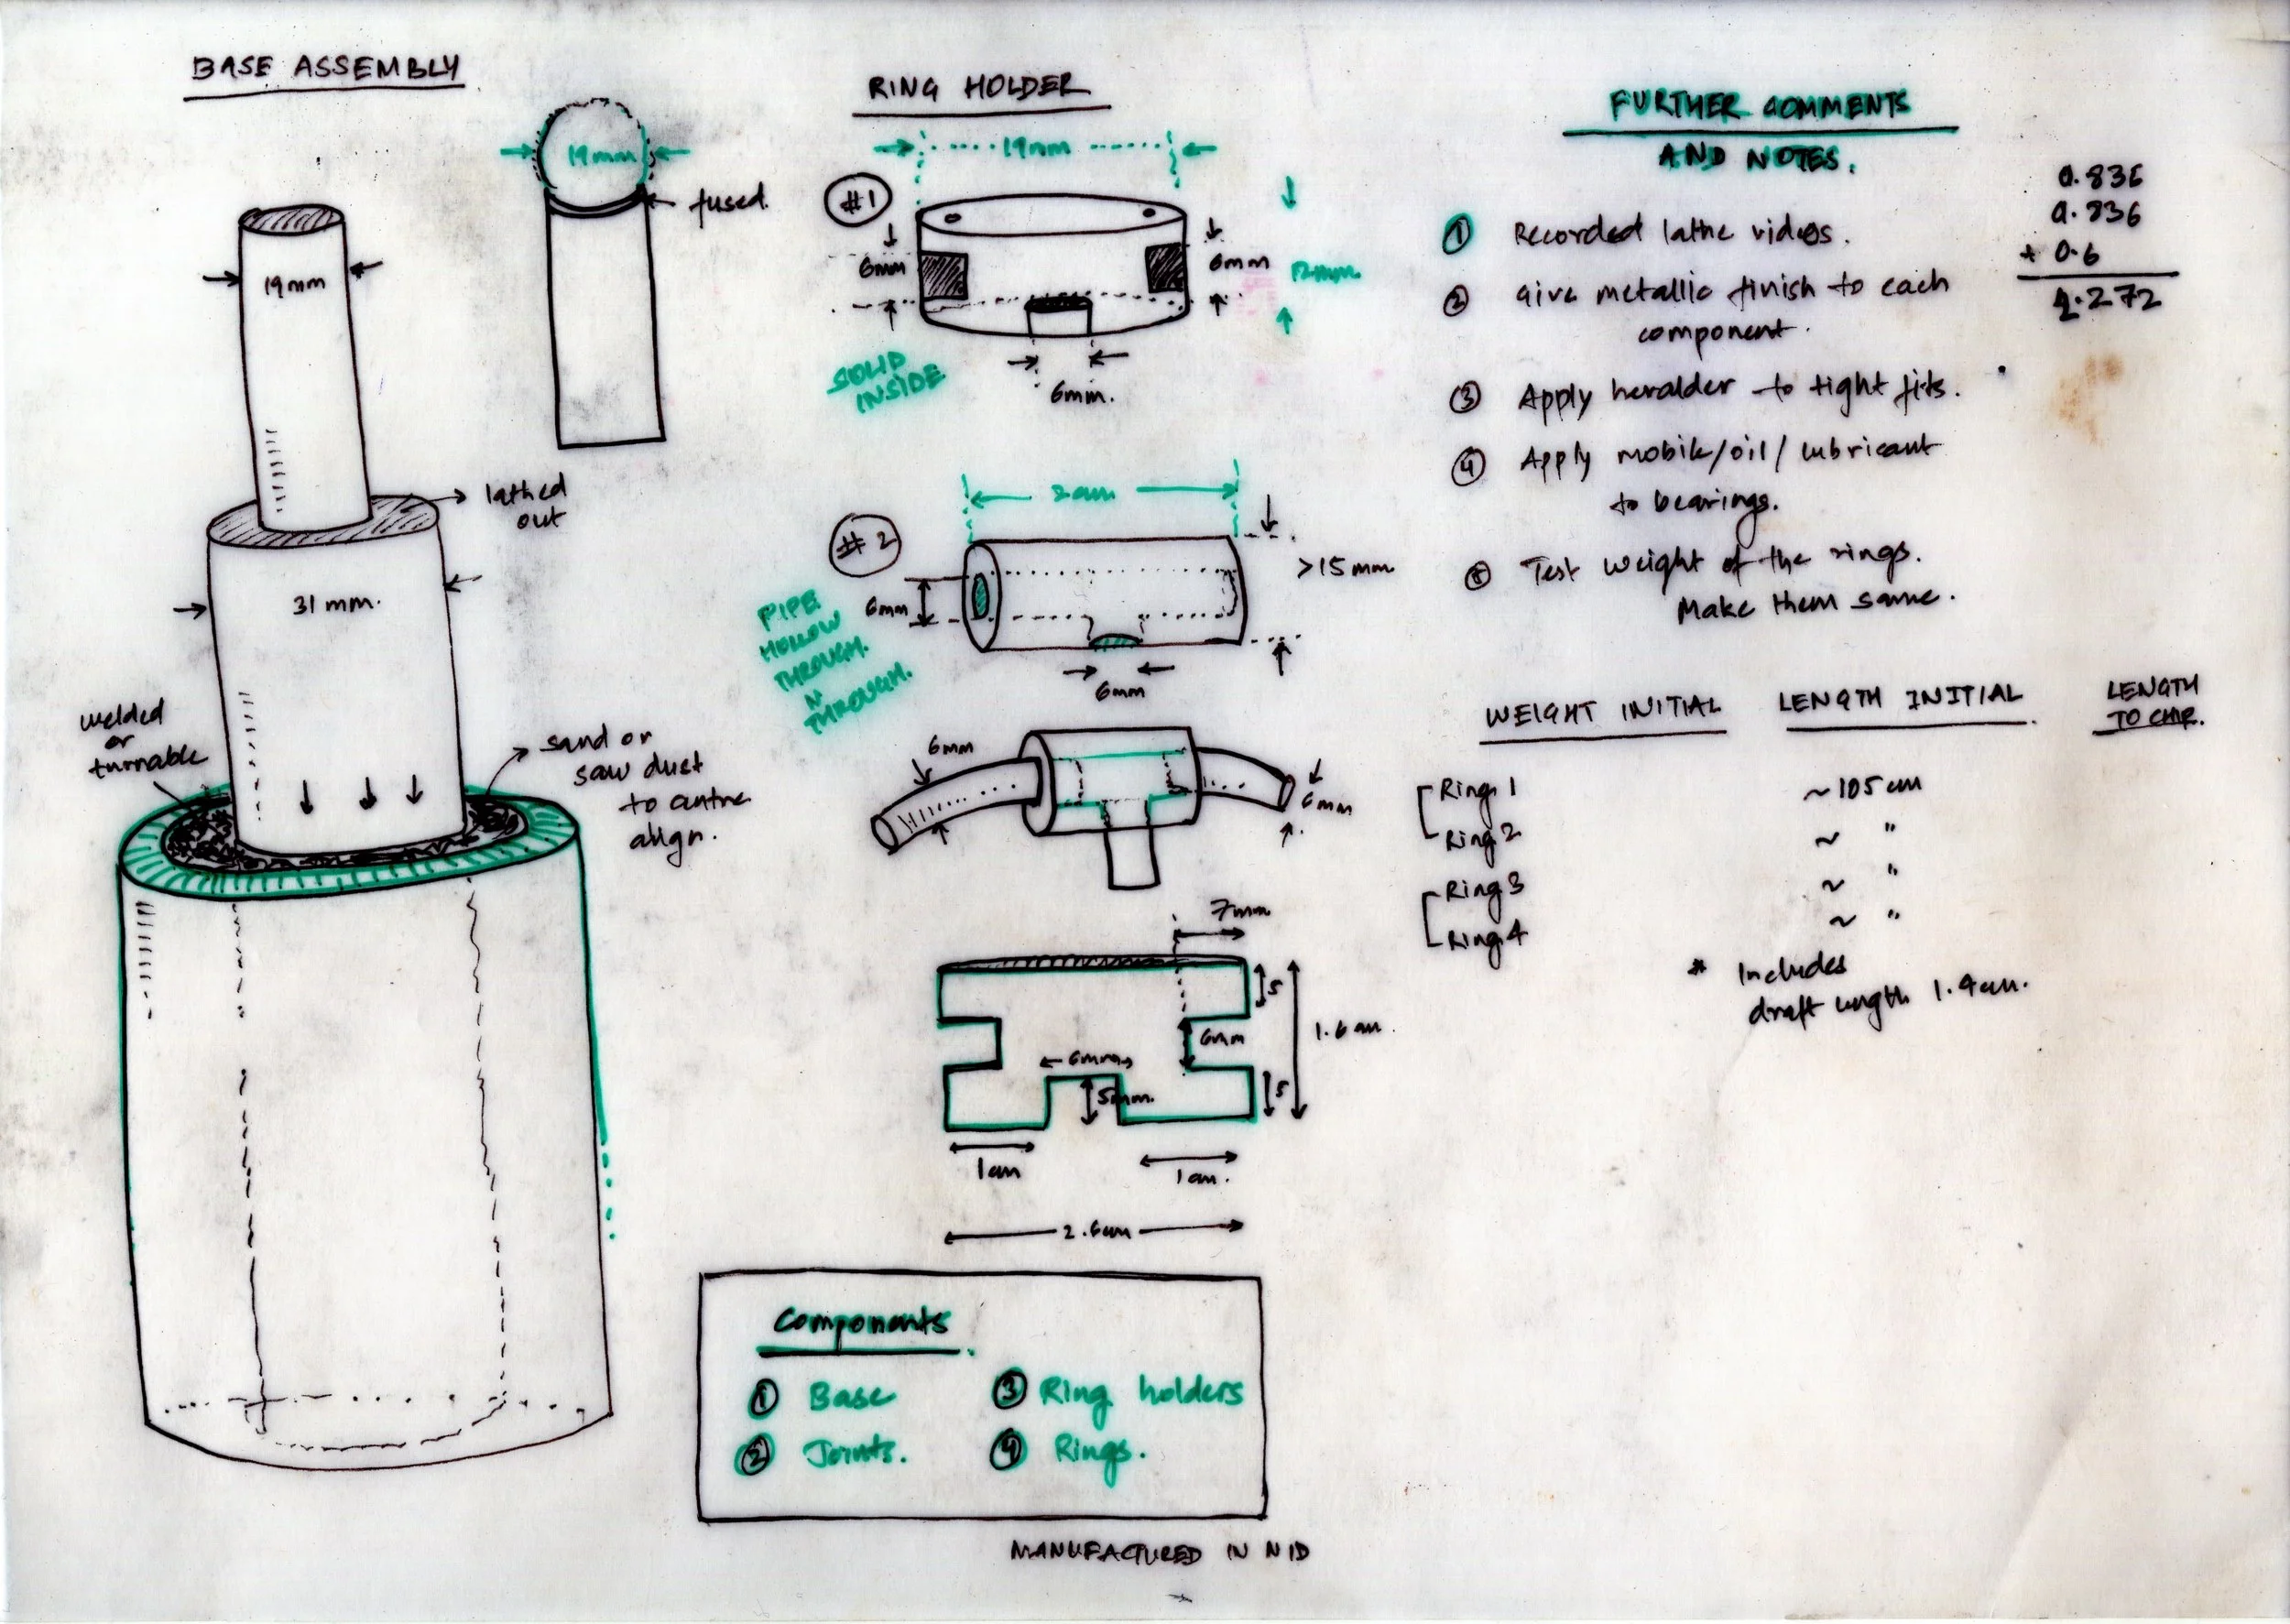 BASE ASSEMBLY
19mm
fused.
19mm
lathed
out
31 mm.
welded
or
turnable
sand or
saw dust
to centre
align.
RING HOLDER
19mm
#1
6mm
6mm
12mm.
SOLID
INSIDE
6mm.
2cm
#2
>15mm
6mm
PIPE
HOLLOW
THROUGH.
N
THROUGH.
6mm
6mm
6mm
7mm
5
6mm
1.6cm.
6mm
5mm.
5
1cm
1cm.
2.6cm
Components
1 Base
2 Joints.
3 Ring holders
4 Rings.
MANUFACTURED IN NID
FURTHER COMMENTS
AND NOTES.
1 Recorded lathe videos.
2 Give metallic finish to each
component.
3 Apply heralder to tight fits.
4 Apply mobile/oil/lubricant
to bearings.
Test weight of the rings.
Make them same.
0.836
0.836
+ 0.6
2.272
WEIGHT INITIAL LENGTH INITIAL LENGTH
TO CHIP.
Ring 1 ~105cm
Ring 2 ~ "
Ring 3 ~ "
Ring 4 ~ "
* Includes
draft length 1.9cm.